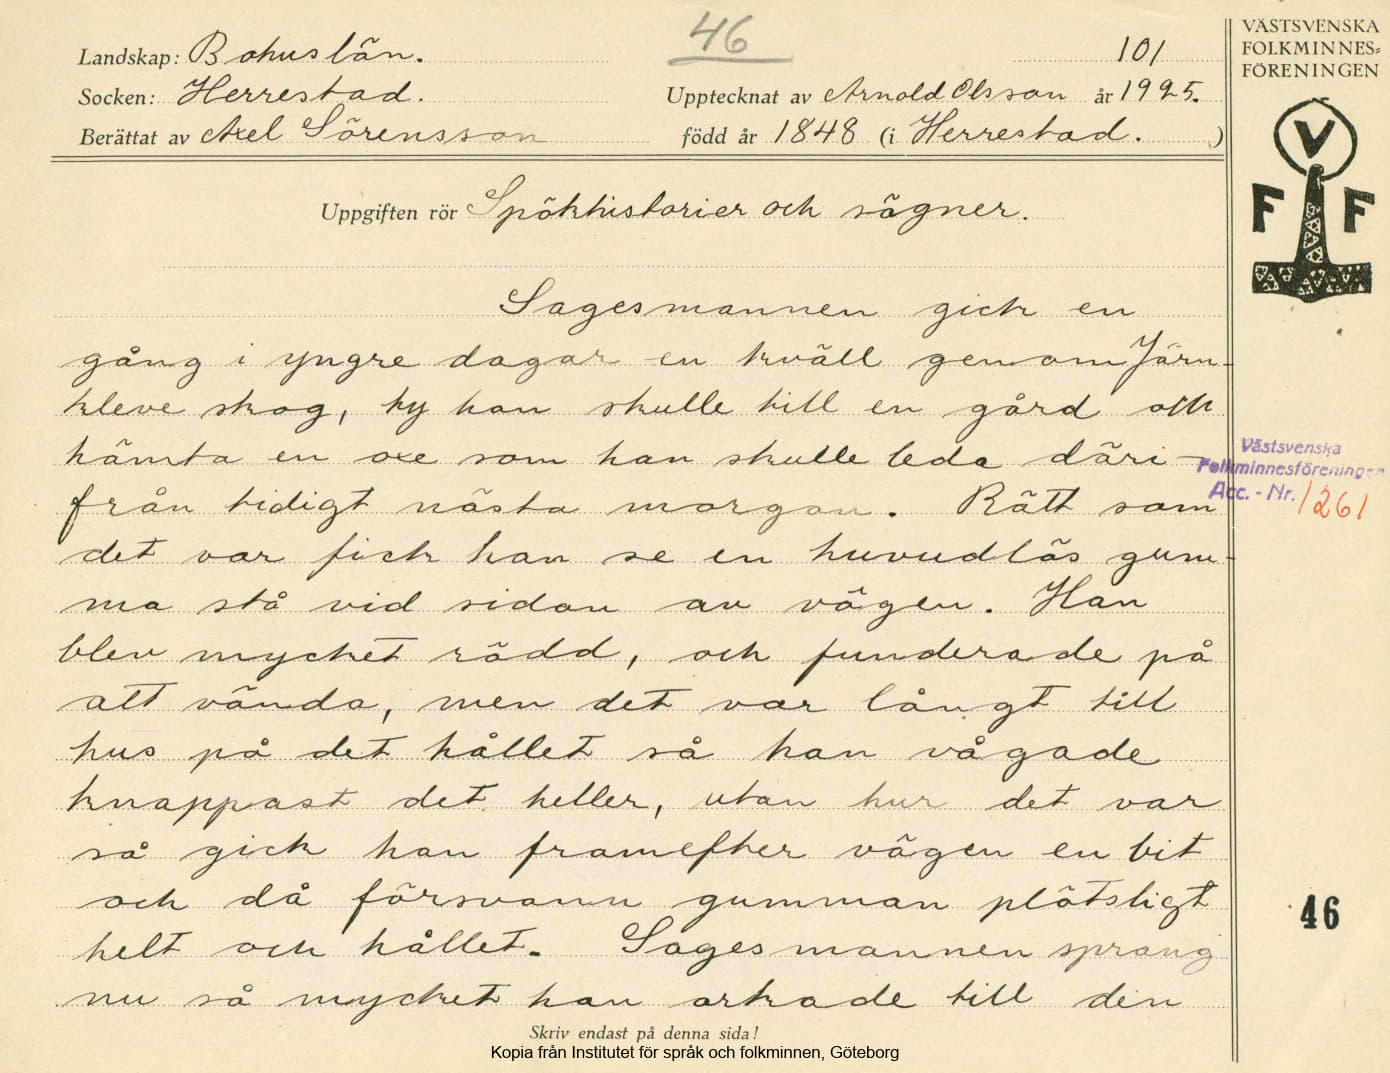 46
VÄSTSVENSKA
FOLKMINNES=
FÖRENINGEN
Landskap: Bohuslän. 101
Socken: Herrestad. Upptecknat av Arnold Olsson år 1925.
Berättat av Axel Sörensson född år 1848 (i Herrestad. )
V
F F
Uppgiften rör Spökhistorier och sägner.
Sagesmannen gick en
gång i yngre dagar en kväll genom Järn-
kleve skog, ty han skulle till en gård och
hämta en oxe som han skulle leda däri-
från tidigt nästa morgon. Rätt som
det var fick han se en huvudlös gum-
ma stå vid sidan av vägen. Han
blev mycket rädd, och funderade på
att vända, men det var långt till
hus på det hållet så han vågade
knappast det heller, utan hur det var
så gick han framefter vägen en bit
och då försvann gumman plötsligt
helt och hållet. Sagesmannen sprang
nu så mycket han orkade till den
Västsvenska
Folkminnesföreningen
Acc. - Nr. 1261
46
Skriv endast på denna sida!
Kopia från Institutet för språk och folkminnen, Göteborg